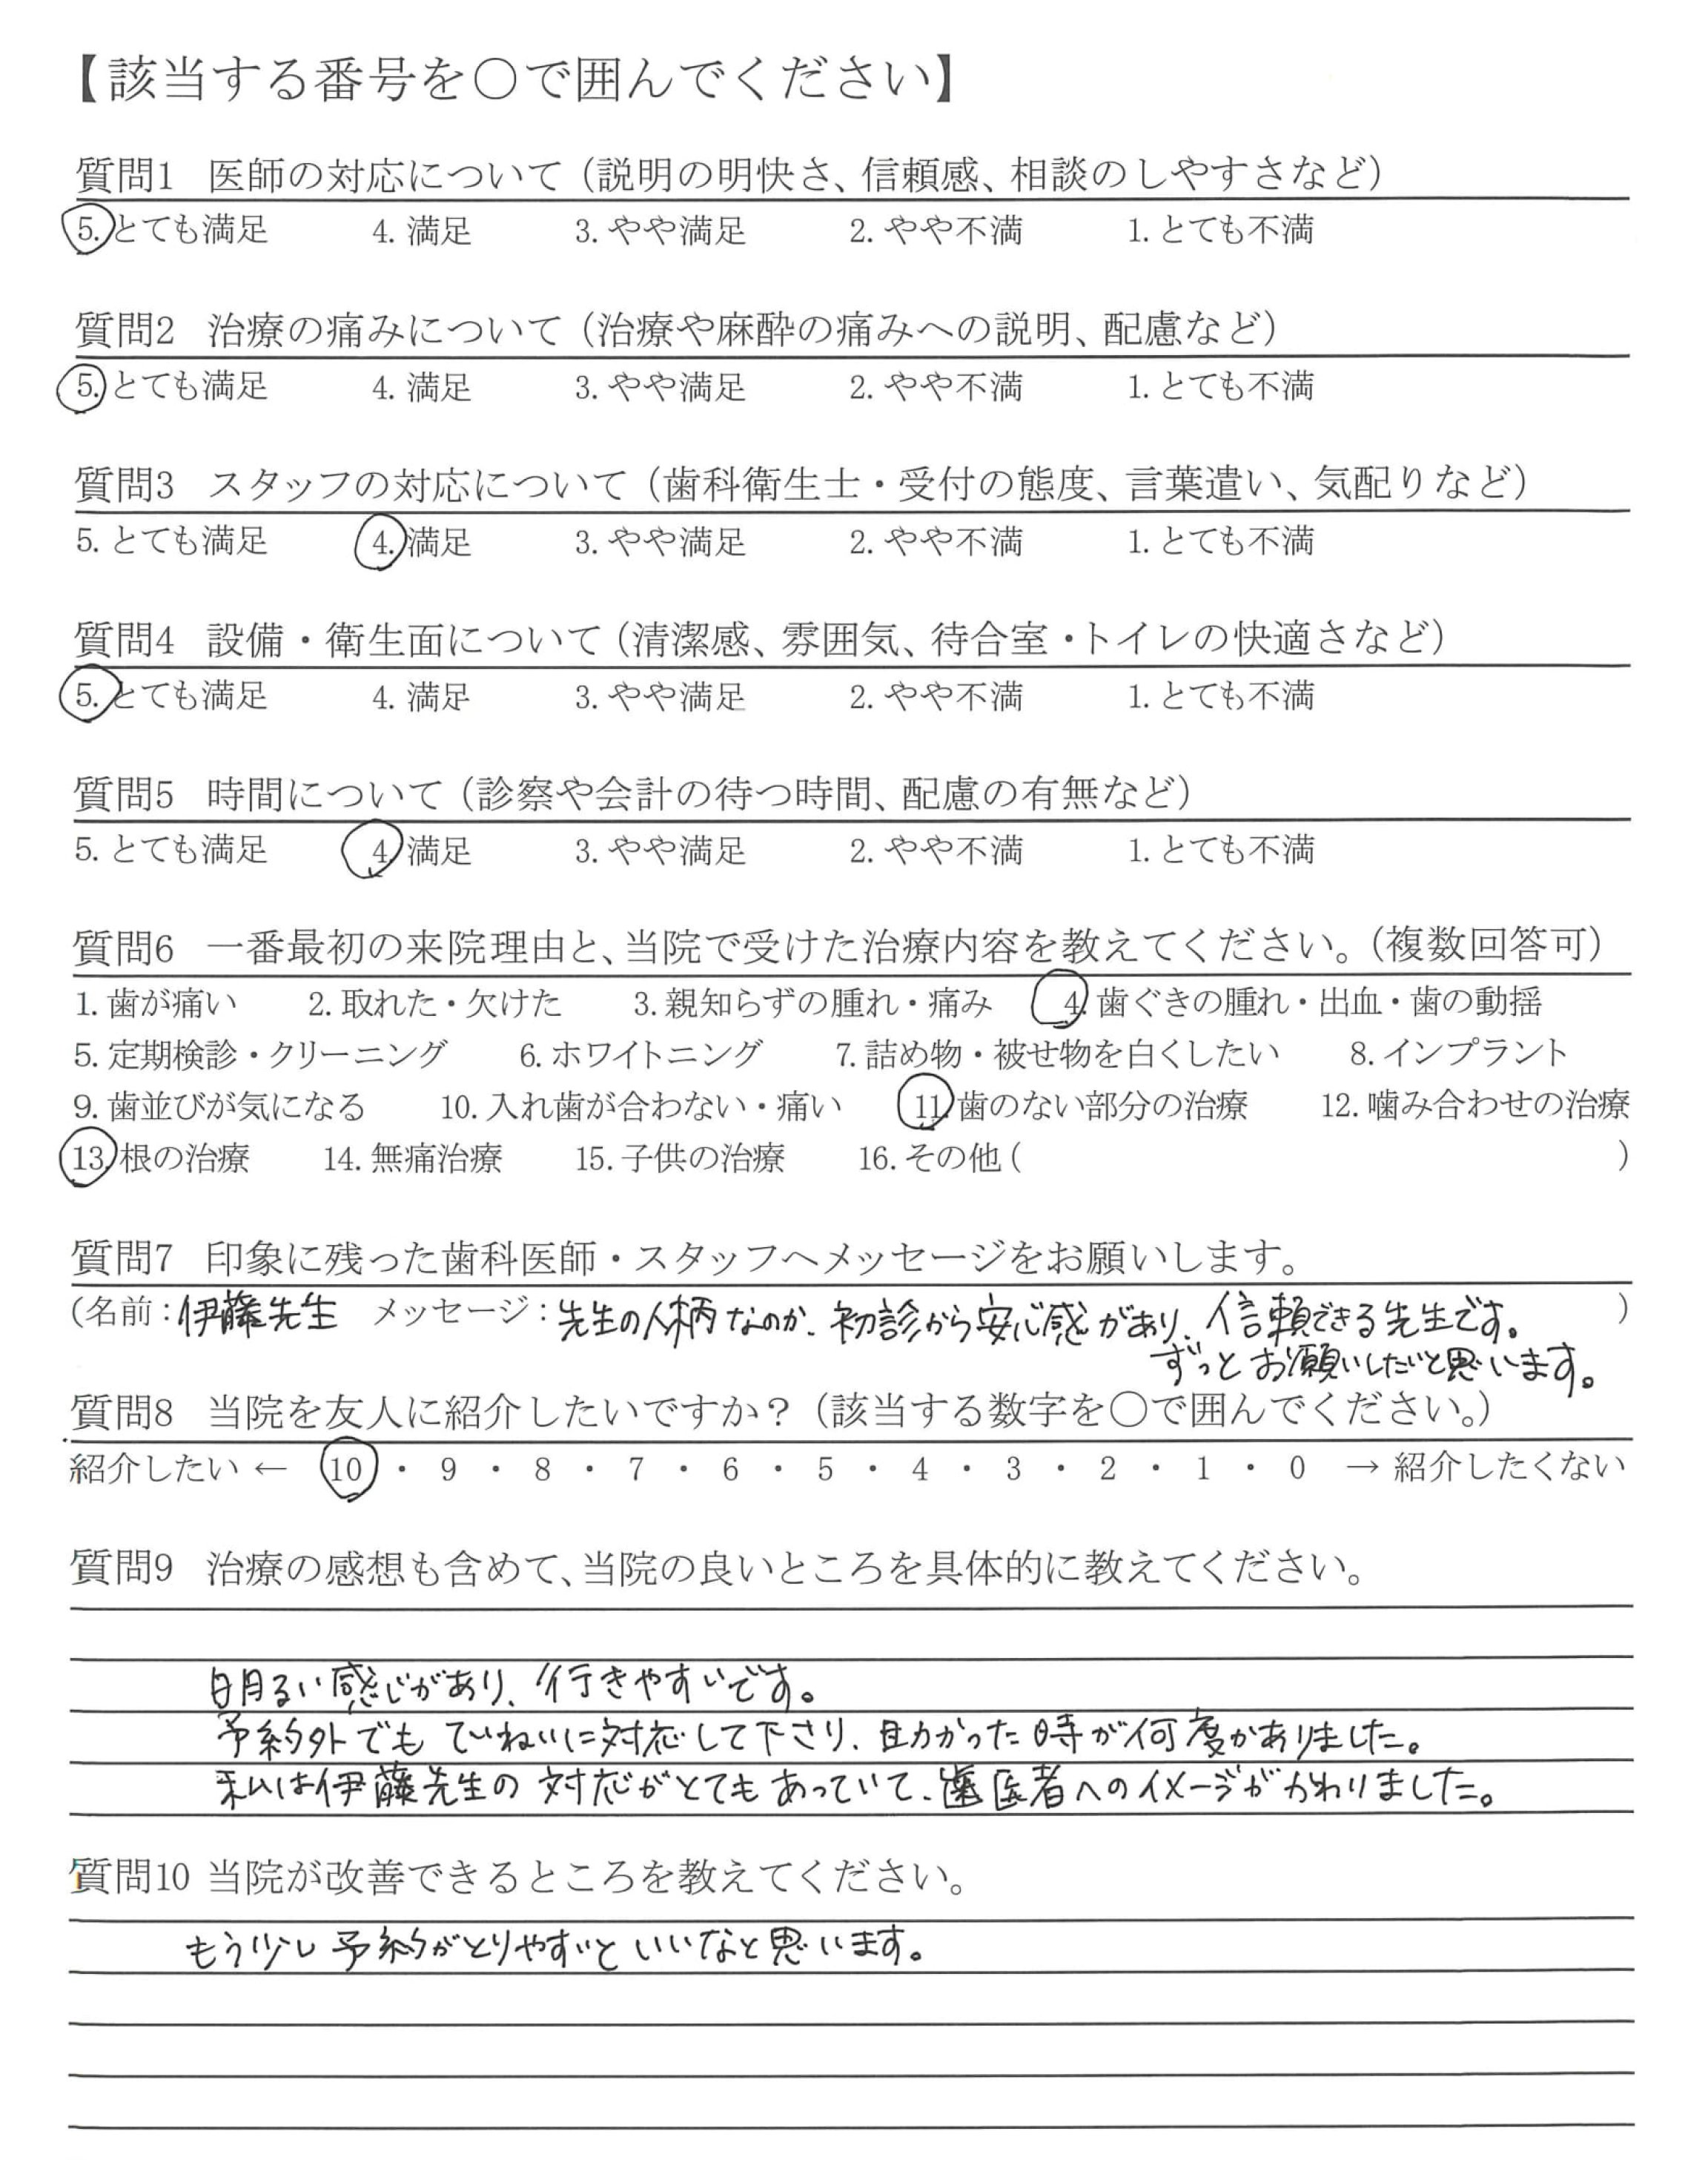 【該当する番号を○で囲んでください】
質問1 医師の対応について（説明の明快さ、信頼感、相談のしやすさなど）
5. とても満足 4. 満足 3. やや満足 2. やや不満 1. とても不満
質問2 治療の痛みについて（治療や麻酔の痛みへの説明、配慮など）
5. とても満足 4. 満足 3. やや満足 2. やや不満 1. とても不満
質問3 スタッフの対応について（歯科衛生士・受付の態度、言葉遣い、気配りなど）
5. とても満足 4. 満足 3. やや満足 2. やや不満 1. とても不満
質問4 設備・衛生面について（清潔感、雰囲気、待合室・トイレの快適さなど）
5. とても満足 4. 満足 3. やや満足 2. やや不満 1. とても不満
質問5 時間について（診察や会計の待つ時間、配慮の有無など）
5. とても満足 4. 満足 3. やや満足 2. やや不満 1. とても不満
質問6 一番最初の来院理由と、当院で受けた治療内容を教えてください。（複数回答可）
1. 歯が痛い 2. 取れた・欠けた 3. 親知らずの腫れ・痛み 4. 歯ぐきの腫れ・出血・歯の動揺
5. 定期検診・クリーニング 6. ホワイトニング 7. 詰め物・被せ物を白くしたい 8. インプラント
9. 歯並びが気になる 10. 入れ歯が合わない・痛い 11. 歯のない部分の治療 12. 噛み合わせの治療
13. 根の治療 14. 無痛治療 15. 子供の治療 16. その他（ ）
質問7 印象に残った歯科医師・スタッフへメッセージをお願いします。
（名前：伊藤先生 メッセージ：先生の人柄なのか、初診から安心感があり、信頼できる先生です。 ）
ずっとお願いしたいと思います。
質問8 当院を友人に紹介したいですか？（該当する数字を○で囲んでください。）
紹介したい ← 10 ・ 9 ・ 8 ・ 7 ・ 6 ・ 5 ・ 4 ・ 3 ・ 2 ・ 1 ・ 0 → 紹介したくない
質問9 治療の感想も含めて、当院の良いところを具体的に教えてください。
明るい感じがあり、行きやすいです。
予約外でも ていねいに対応して下さり、助かった時が何度かありました。
私は伊藤先生の対応がとてもあっていて、歯医者へのイメージがかわりました。
質問10 当院が改善できるところを教えてください。
もう少し予約がとりやすいといいなと思います。